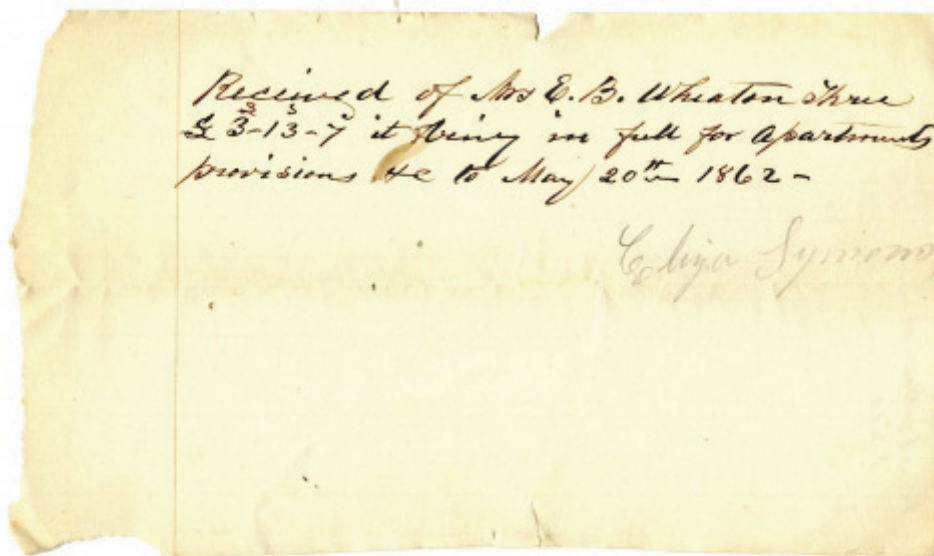 Received of Mrs E. B. Wheaton three
£ 3-13-7 it being in full for Apartments
provisions &c to May 20th 1862 -
Eliza Symons